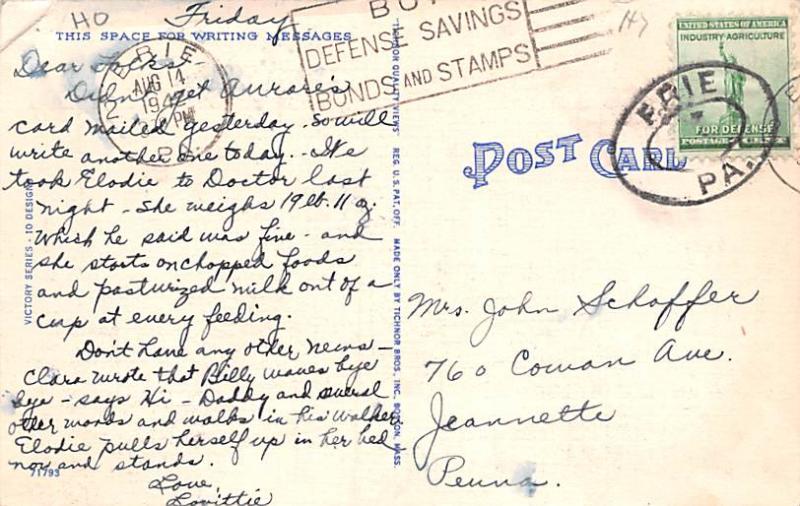 HO
Friday
THIS SPACE FOR WRITING MESSAGES
Dear Folks -
Didn't get Aurore's
card mailed yesterday. So will
write another one today. - We
took Elodie to Doctor last
night - She weighs 19 lb. 11 oz.
Which he said was fine - and
she starts on chopped foods
and pasturized milk out of a
cup at every feeding.
Don't have any other news -
Clara wrote that Billy waves bye
bye - says Hi - Daddy and several
other words and walks in his walker
Elodie pulls herself up in her bed
now and stands.
Love,
Lovittie
71793
VICTORY SERIES - 10 DESIGNS
"TICHNOR QUALITY VIEWS" REG. U.S. PAT. OFF. MADE ONLY BY TICHNOR BROS., INC., BOSTON, MASS.
ERIE
AUG 14
PM
PA.
BUY
DEFENSE SAVINGS
BONDS AND STAMPS
POST CARD
UNITED STATES OF AMERICA
INDUSTRY-AGRICULTURE
FOR DEFENSE
POSTAGE
ERIE
PA.
Mrs. John Schaffer
760 Cowan Ave.
Jeannette
Penna.